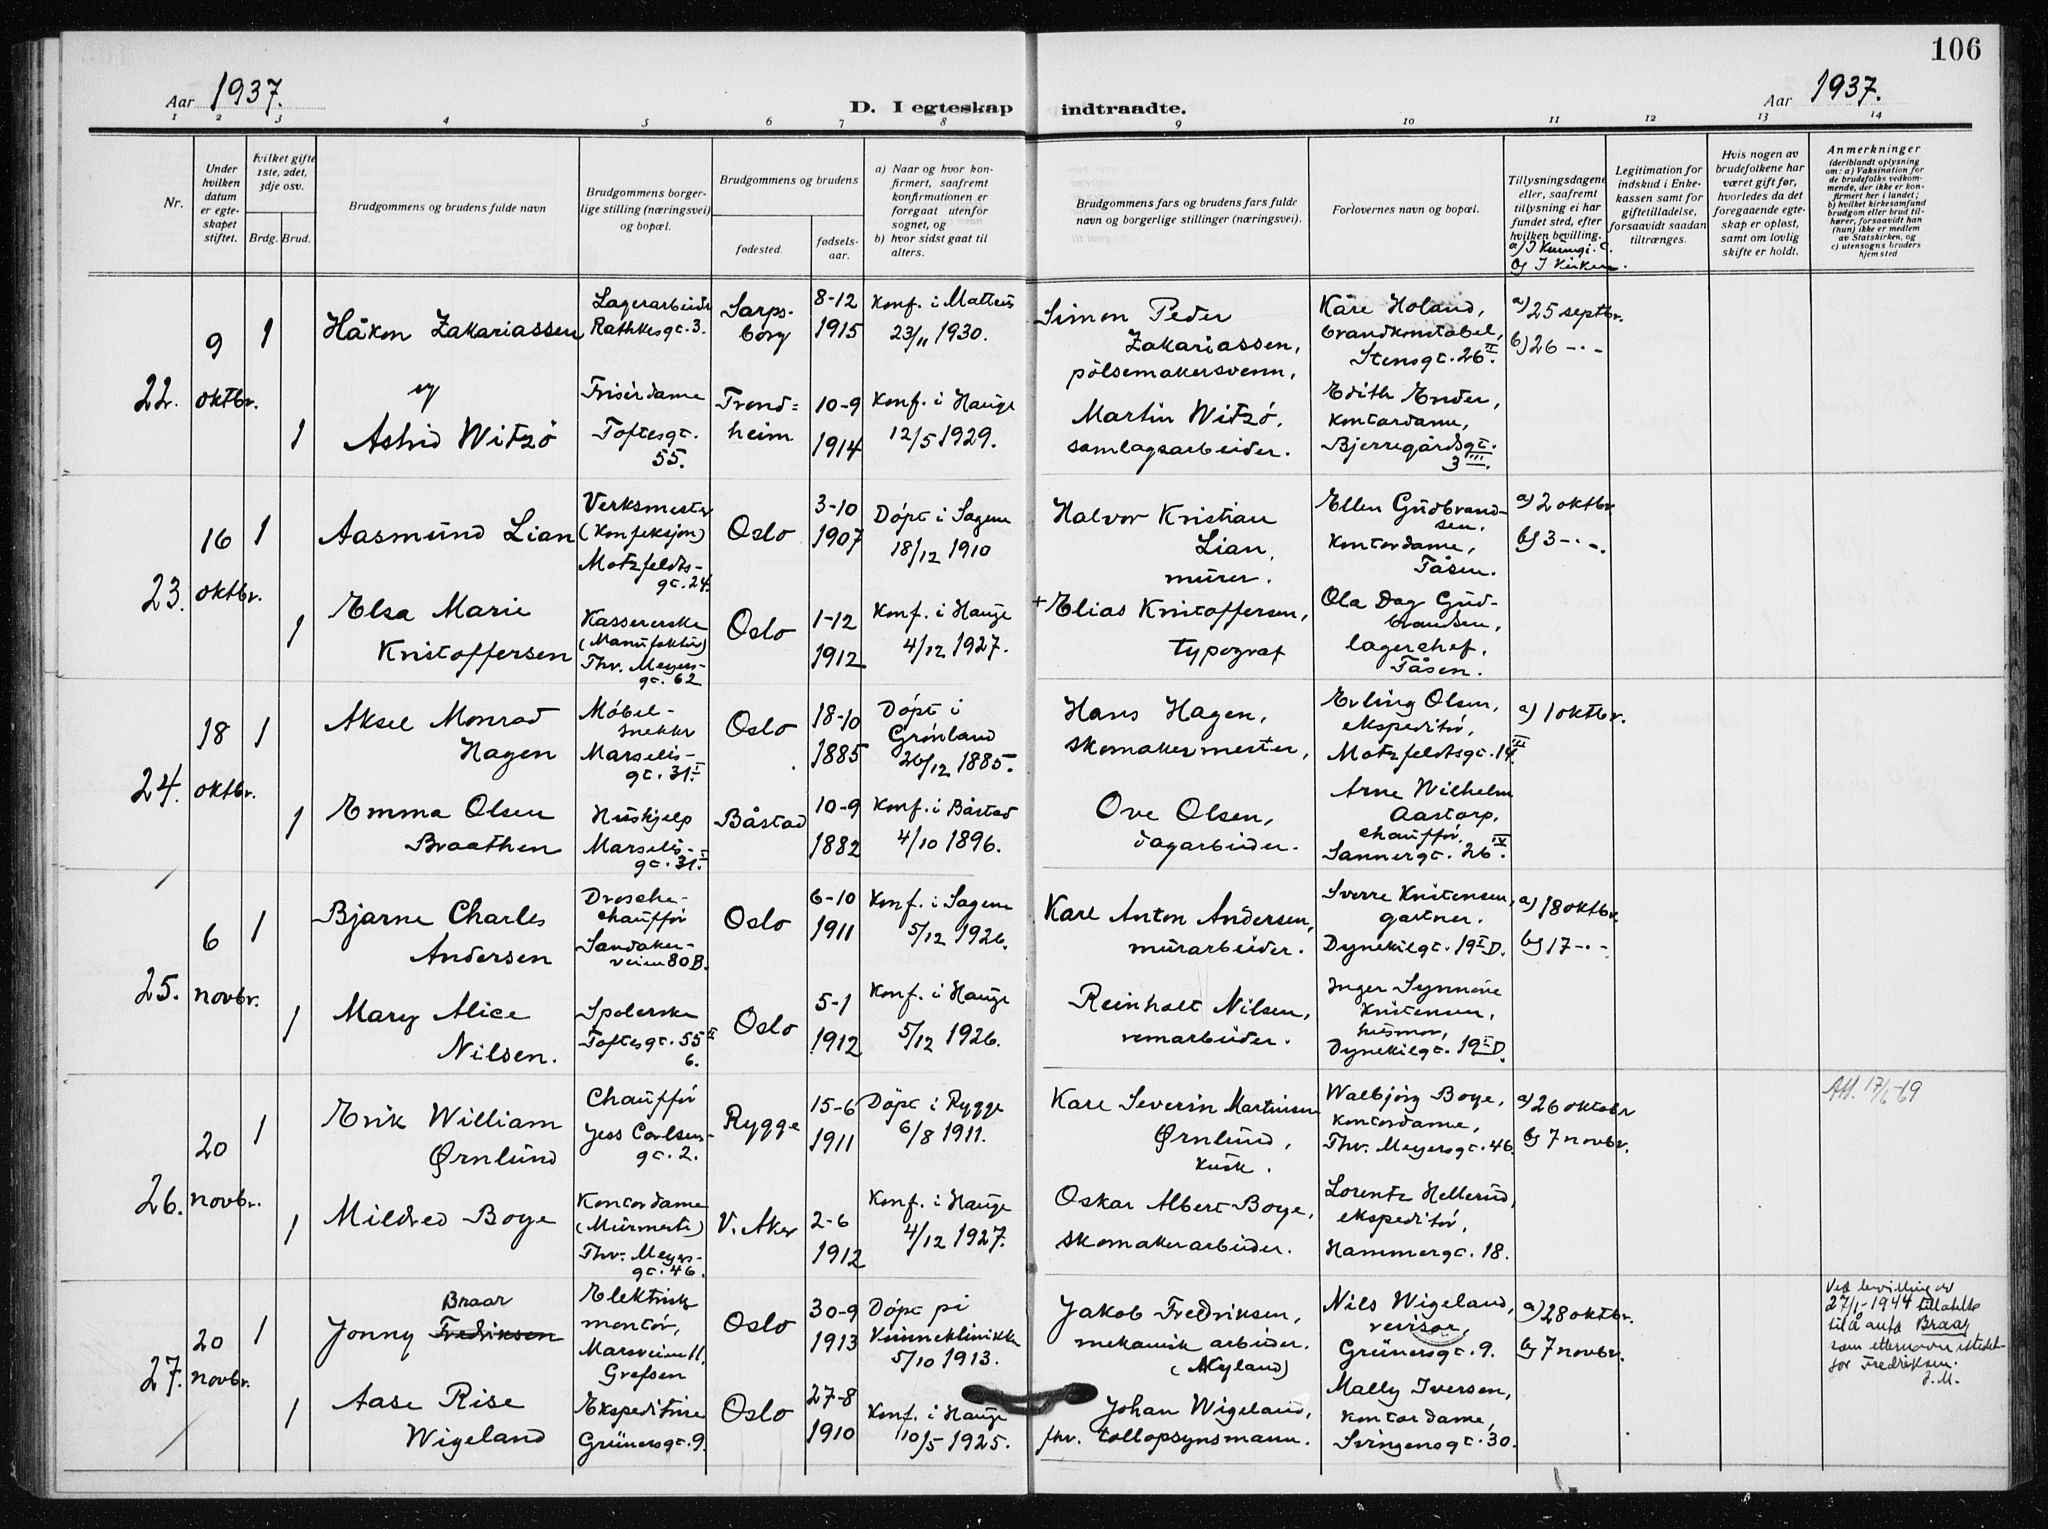 106
Aar 1937.
D. I egteskap indtraadte.
Aar 1937.
1 2 3 4 5 6 7 8 9 10 11 12 13 14
Nr.
Under
hvilken
datum
er egte-
skapet
stiftet.
Hvilket gifte
1ste, 2det,
3dje osv.
Brdg. Brud.
Brudgommens og brudens fulde navn
Brudgommens borger-
lige stilling (næringsvei)
og bopæl.
Brudgommens og brudens
fødested.
fødsels-
aar.
a) Naar og hvor kon-
firmert, saafremt
konfirmationen er
foregaat utenfor
sognet, og
b) hvor sidst gaat til
alters.
Brudgommens fars og brudens fars fulde
navn og borgerlige stillinger (næringsvei).
Forlovernes navn og bopæl.
Tillysningsdagene
eller, saafremt
tillysning ei har
fundet sted, efter
hvilken bevilling.
b) I Kirken.
Legitimation for
indskud i Enke-
kassen samt for
giftetilladelse,
forsaavidt saadan
tiltrænges.
Hvis nogen av
brudefolkene har
været gift før,
hvorledes da det
foregaaende egte-
skap er opløst,
samt om lovlig
skifte er holdt.
Anmerkninger
(deriblandt oplysning
om: a) Vaksination for
de brudefolks vedkom-
mende, der ikke er kon-
firmert her i landet;
b) hvilket kirkesamfund
brudgom eller brud til-
hører, forsaavidt han
(hun) ikke er medlem
av Statskirken, og
c) utensogns bruders
hjemsted
22.
9
oktbr.
1
Håkon Zakariassen
Lagerarbeider
Rathkesgt. 3.
Sarps-
borg
8-12
1915
Konf. i Matteus
23/11 1930.
Simon Peder
Zakariassen,
pölsemakersvenn,
Kåre Holand,
brandkonstabel,
Stensgt. 26 II.
a) 25 septbr.
b) 26 -"-
og
1
Astrid Witzö
Frisördame
Toftesgt.
55.
Trond=
heim
10-9
1914
Konf. i Hauge
12/5 1929.
Martin Witzö,
samlagsarbeider.
Edith Ender,
kontordame,
Bjerregårdsgt.
3 III.
23.
16
oktbr.
1
Aasmund Lian
Verksmester
(Konfeksjon)
Motzfeldts-
gt. 24.
Oslo
3-10
1907
Döpt i Sagene
18/12 1910
Halvor Kristian
Lian,
murer.
Ellen Gudbrand-
sen,
kontordame,
Tåsen.
a) 2 oktbr.
b) 3 -"-
1
Elsa Marie
Kristoffersen
Kassererske
(Manufaktur)
Thv. Meyers-
gt. 62
Oslo
1-12
1912
Konf. i Hauge
4/12 1927.
+ Elias Kristoffersen,
typograf
Ola Dag Gud-
brandsen,
lagerchef,
Tåsen.
24.
18
oktbr.
1
Aksel Monrad
Hagen
Möbel-
snekker
Marselis-
gt. 31 I
Oslo
18-10
1885
Döpt i
Grönland
26/12 1885.
Hans Hagen,
skomakermester,
Erling Olsen,
ekspeditör,
Motzfeldtsgt. 14 III
a) 1 oktbr.
1
Emma Olsen
Braathen
Hushjelp
Marselis-
gt. 31 I
Båstad
10-9
1882
Konf. i Båstad
4/10 1896.
Ove Olsen,
dagarbeider.
Arne Wilhelm
Aastorp,
chaufför,
Sannergt. 26 IV.
25.
6
novbr.
1
Bjarne Charles
Andersen
Drosche-
chaufför
Sandaker-
veien 80 B.
Oslo
6-10
1911
Konf. i Sagene
5/12 1926.
Karl Anton Andersen,
murarbeider.
Sverre Kristensen,
gartner.
Dynekilgt. 19 I D.
a) 18 oktbr.
b) 17 -"-
1
Mary Alice
Nilsen.
Spolerske
Toftesgt. 55 II
6.
Oslo
5-1
1912
Konf. i Hauge
5/12 1926.
Reinholt Nilsen,
remarbeider.
Inger Synnöve
Kristensen,
husmor,
Dynekilgt. 19 I D.
26.
20
novbr.
1
Erik William
Ørnlund
Chaufför
Jess Carlsens-
gt. 2.
Rygge
15-6
1911
Döpt i Rygge
6/8 1911.
Karl Severin Martinsen
Ørnlund,
kusk.
Walbjörg Boye,
kontordame,
Thv. Meyersgt. 46.
a) 26 oktobr
b) 7 novbr.
Att. 17/6-69
1
Mildred Boye
Kontordame
(Murmester)
Thv. Meyers-
gt. 46.
V. Aker
2-6
1912
Konf. i Hauge
4/12 1927.
Oskar Albert Boye,
skomakerarbeider.
Lorentz Hellerud,
ekspeditör,
Hammergt. 18.
27.
20
novbr.
1
Braar
Jonny Fredriksen
Elektrisk
montör,
Marsveien 11.
Grefsen
Oslo
30-9
1913
Döpt på
Kvinneklinikk
5/10 1913.
Jakob Fredriksen,
mekanisk arbeider.
(Myland)
Nils Wigeland,
revisor,
Grünersgt. 9.
a) 28 oktbr.
b) 7 novbr.
Ved bevilling av
27/1-1944 tillatelse
til å anta Braar
som etternavn istedet-
for Fredriksen.
J.M.
1
Aase Rise
Wigeland
Ekspeditrise
Grünersgt. 9.
Oslo
27-8
1910
Konf. i Hauge
10/5 1925.
Johan Wigeland,
fhv. tollopsynsmann.
Mally Iversen,
kontordame,
Svingensgt. 30.